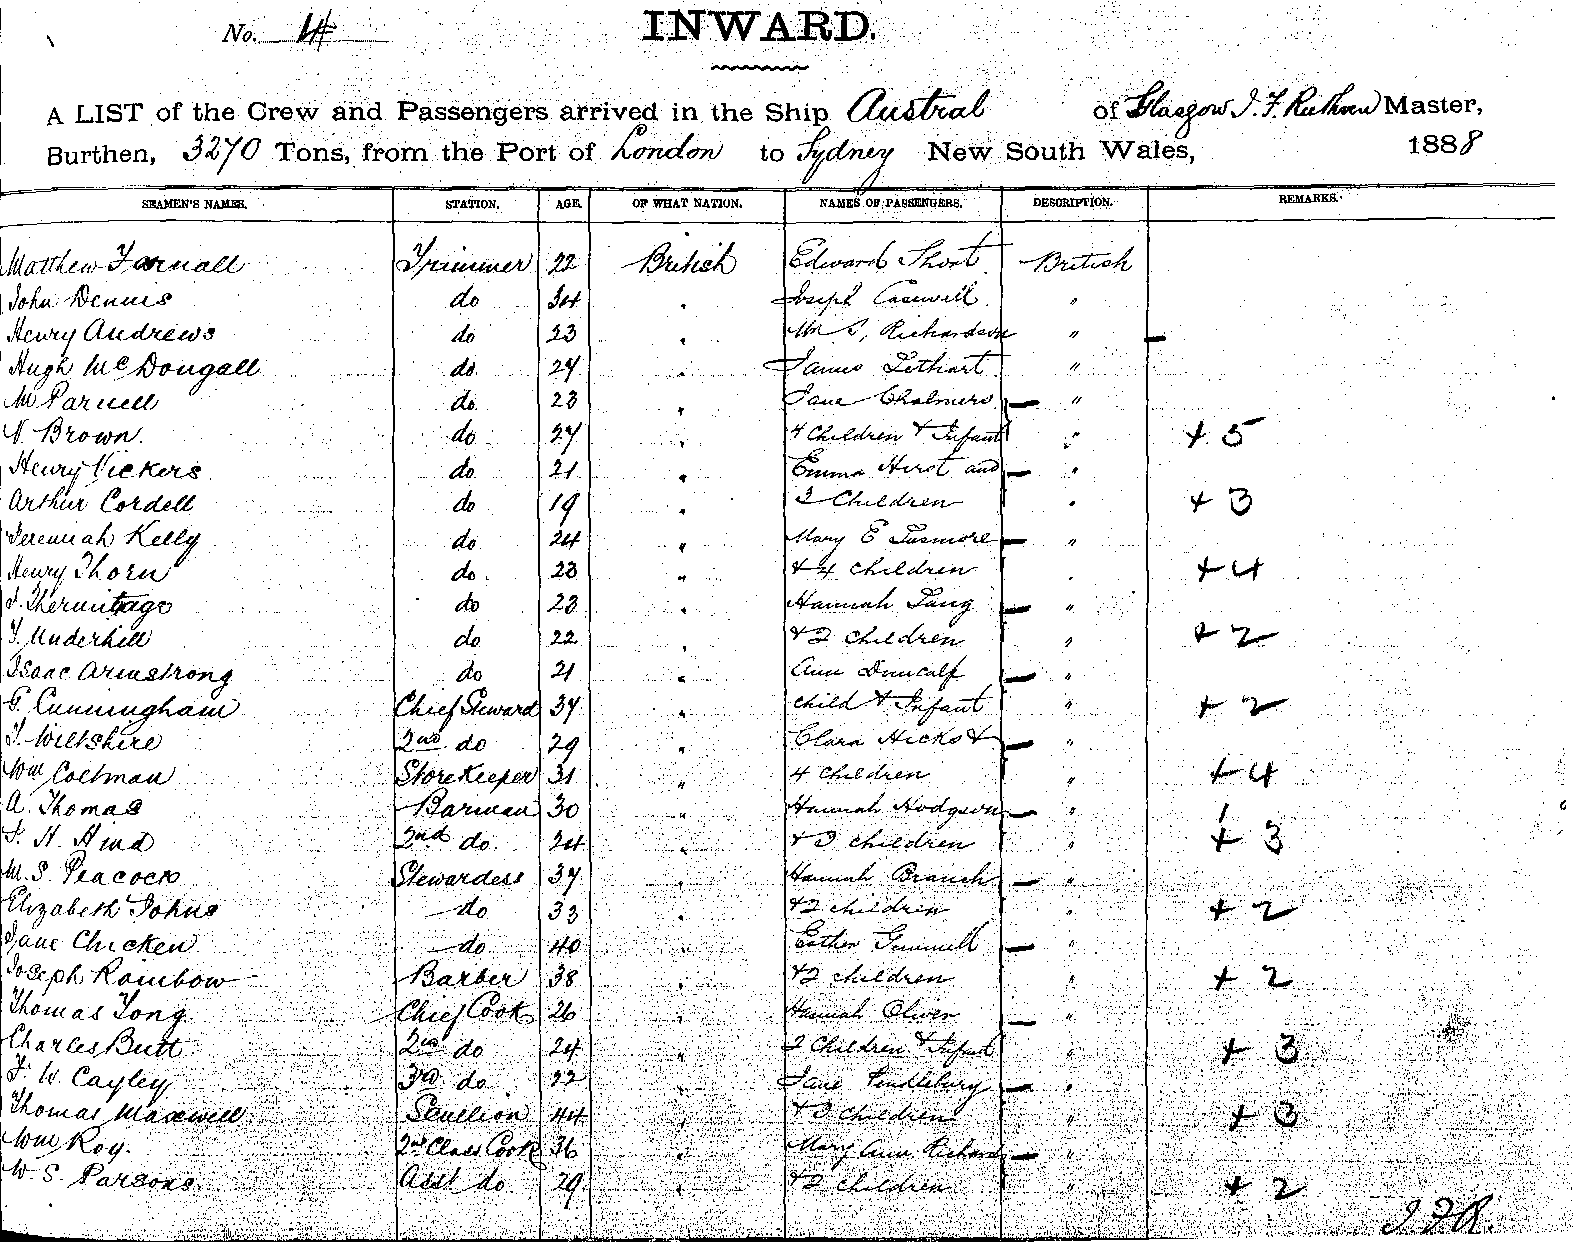 No. 4
INWARD.
A LIST of the Crew and Passengers arrived in the Ship Austral of Glasgow J. F. Ruthven Master,
Burthen, 3270 Tons, from the Port of London to Sydney New South Wales, 1888
SEAMEN'S NAMES. STATION. AGE. OF WHAT NATION. NAMES OF PASSENGERS. DESCRIPTION. REMARKS.
Matthew Farnall Trimmer 22 British Edward Short British
John Dennis do 34 " Joseph Casewell "
Henry Andrews do 23 " Richardson "
Hugh McDougall do 24 " James "
M Parnell do 23 " Jane Chalmers "
N. Brown. do 27 " 4 Children & Infant " + 5
Henry Vickers do 21 " Emma Hirst and "
Arthur Cordell do 19 " 3 Children " + 3
Jeremiah Kelly do 24 " Mary E "
Henry Thorn do 23 " & 4 children " + 4
do 23 " Hannah "
T. Underhill do 22 " & 2 children " + 2
Isaac Armstrong do 21 " Ann Duncalf "
G. Cunningham Chief Steward 37 " child & Infant " + 2
T. Wiltshire 2nd do 29 " Clara Hicks & "
Wm Coltman Store Keeper 31 " 4 children " + 4
A. Thomas Barman 30 " Hannah Hodgson "
H. Hind 2nd do 24 " & 3 children " + 3
M. S. Peacock Stewardess 37 " Hannah Branch "
Elizabeth Johns do 33 " & 2 children " + 2
Jane Chicken do 40 " Esther Gemmell "
Joseph Rainbow Barber 38 " & 2 children " + 2
Thomas Long Chief Cook 26 " Hannah Oliver "
Charles Butt 2nd do 24 " 2 Children & Infant " + 3
F. W. Cayley 3rd do 22 " Jane Pendlebury "
Thomas Maxwell Scullion 44 " & 3 children " + 3
Wm Roy. 2nd Class Cook 36 " Mary Ann Richard "
W. S. Parsons Asst do 29 " & 2 children " + 2
J. F. R.